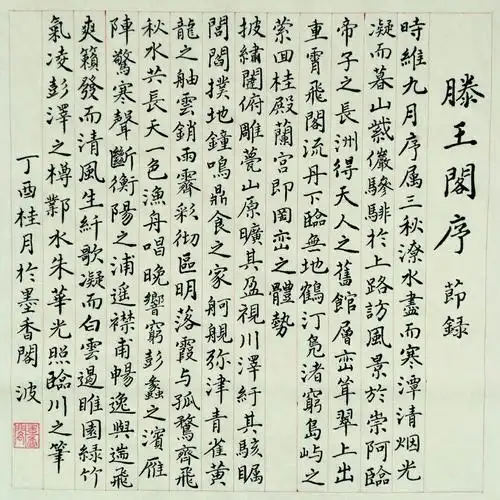 滕王閣序 節録
時維九月序属三秋潦水盡而寒潭清烟光
凝而暮山紫儼驂騑於上路訪風景於崇阿臨
帝子之長洲得天人之舊館層巒耸翠上出
重霄飛閣流丹下臨無地鶴汀鳧渚窮島屿之
萦回桂殿蘭宮即岡巒之體勢
披繡闥俯雕甍山原曠其盈視川澤纡其駭矚
閭閻撲地鐘鳴鼎食之家舸艦弥津青雀黄
龍之舳雲銷雨霽彩彻區明落霞与孤鶩齊飛
秋水共長天一色漁舟唱晚響窮彭蠡之濱雁
陣驚寒聲斷衡陽之浦遥襟甫暢逸興遄飛
爽籟發而清風生纤歌凝而白雲遏睢園緑竹
氣凌彭澤之樽鄴水朱華光照臨川之筆
丁酉桂月於墨香閣 波